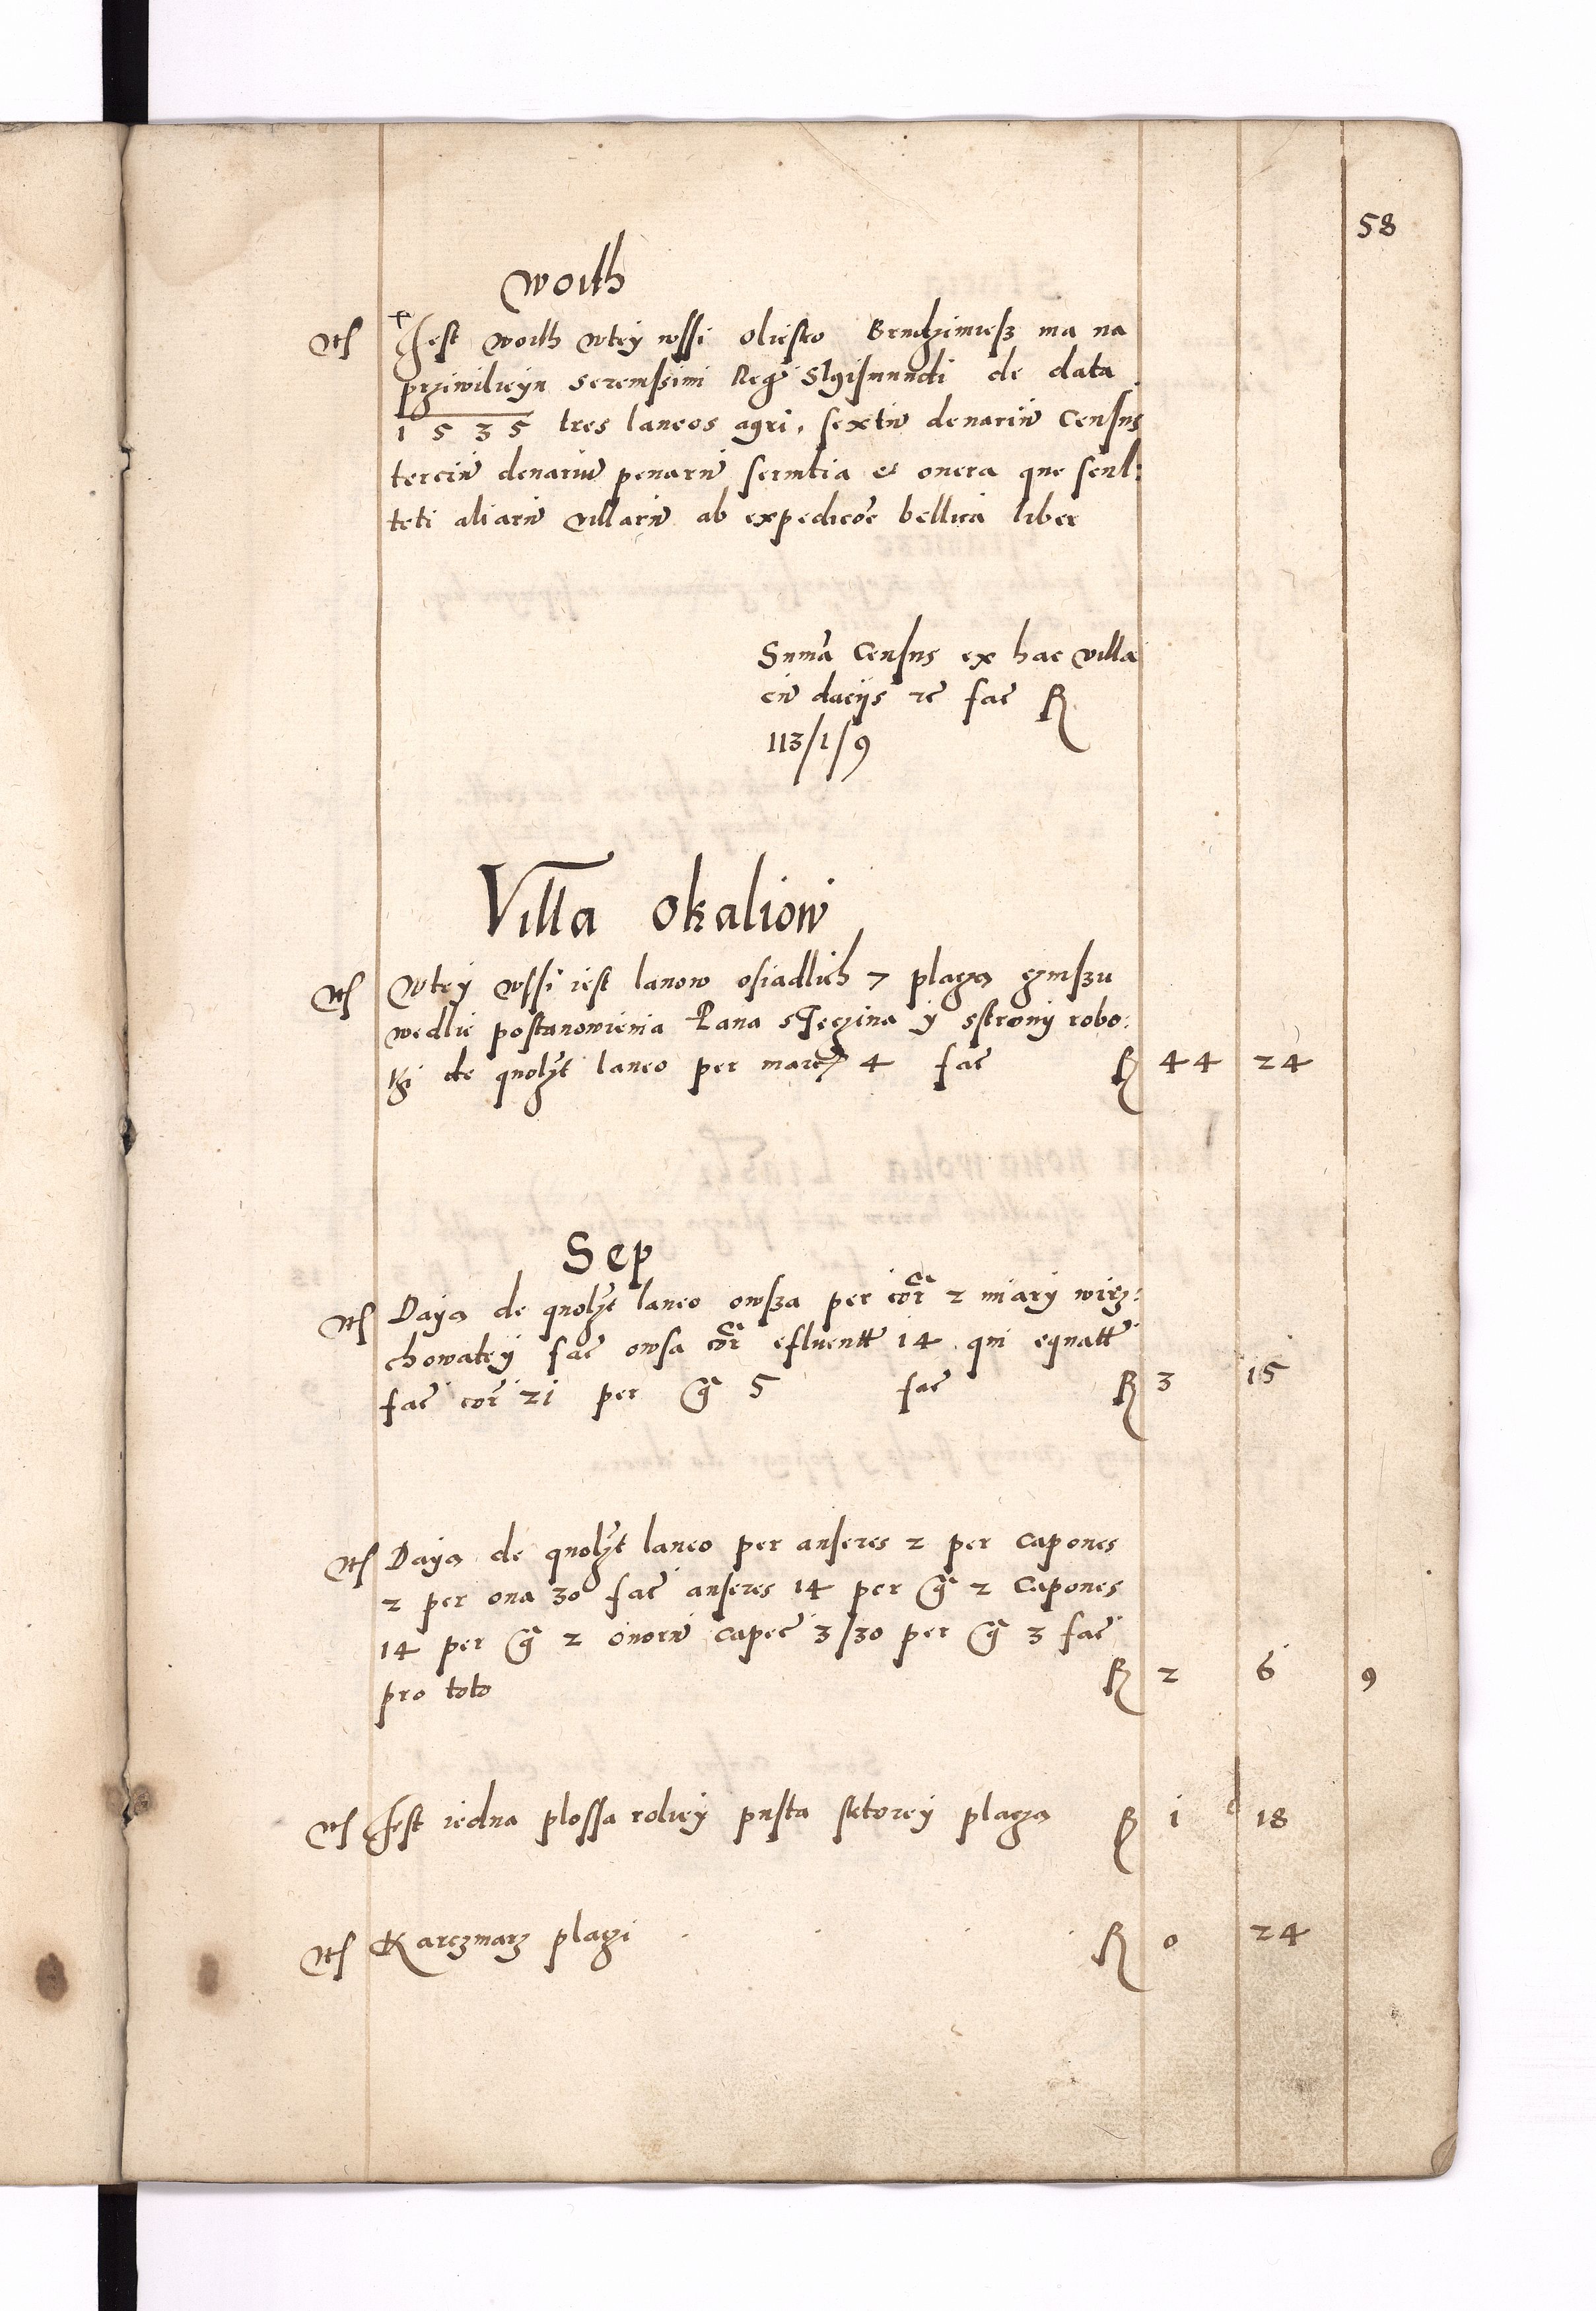 58
Woith
Itē Jest Woith wtey wssi Oliesko ma na
przÿwileÿu Serenissimi Reg Sigismundi de data
1535 tres laneos agri, sextū denariū Census
terciū denariū penarū servitia et onera que scul:
teti aliarū villarū ab expedicōe bellica liber
Sumā Census ex hac villa
cū dacÿs rc̄ fac̄ R
113/1/9
Villa Okaliow
Itē Wtey wssi iest lanow osiadlich 7 placza czinszu
wedlie postanowienia Pana sTeczina ÿ sstronÿ robo:
thi de quolȝt laneo per marc 4 fac̄ R 44 24
Sep
Itē Daÿa de quolȝt laneo owsza per cor̄ 2 miarÿ wirz:
chowatey fac̄ owsa cor̄ efluentt 14 qui equatt
fac̄ cor̄ 21 per gr̄ 5 fac̄ R 3 15
Itē Daÿa de quolȝt laneo per anseres 2 per capones
2 per oua 30 fac̄ anseres 14 per gr̄ 2 Capones
14 per gr̄ 2 ouorū capec̄ 3/30 per gr̄ 3 fac̄
pro toto R 2 6 9
Itē Jest iedna plossa roliey pusta sktorey placza R 1 18
Itē Karczmarz placzi R 0 24